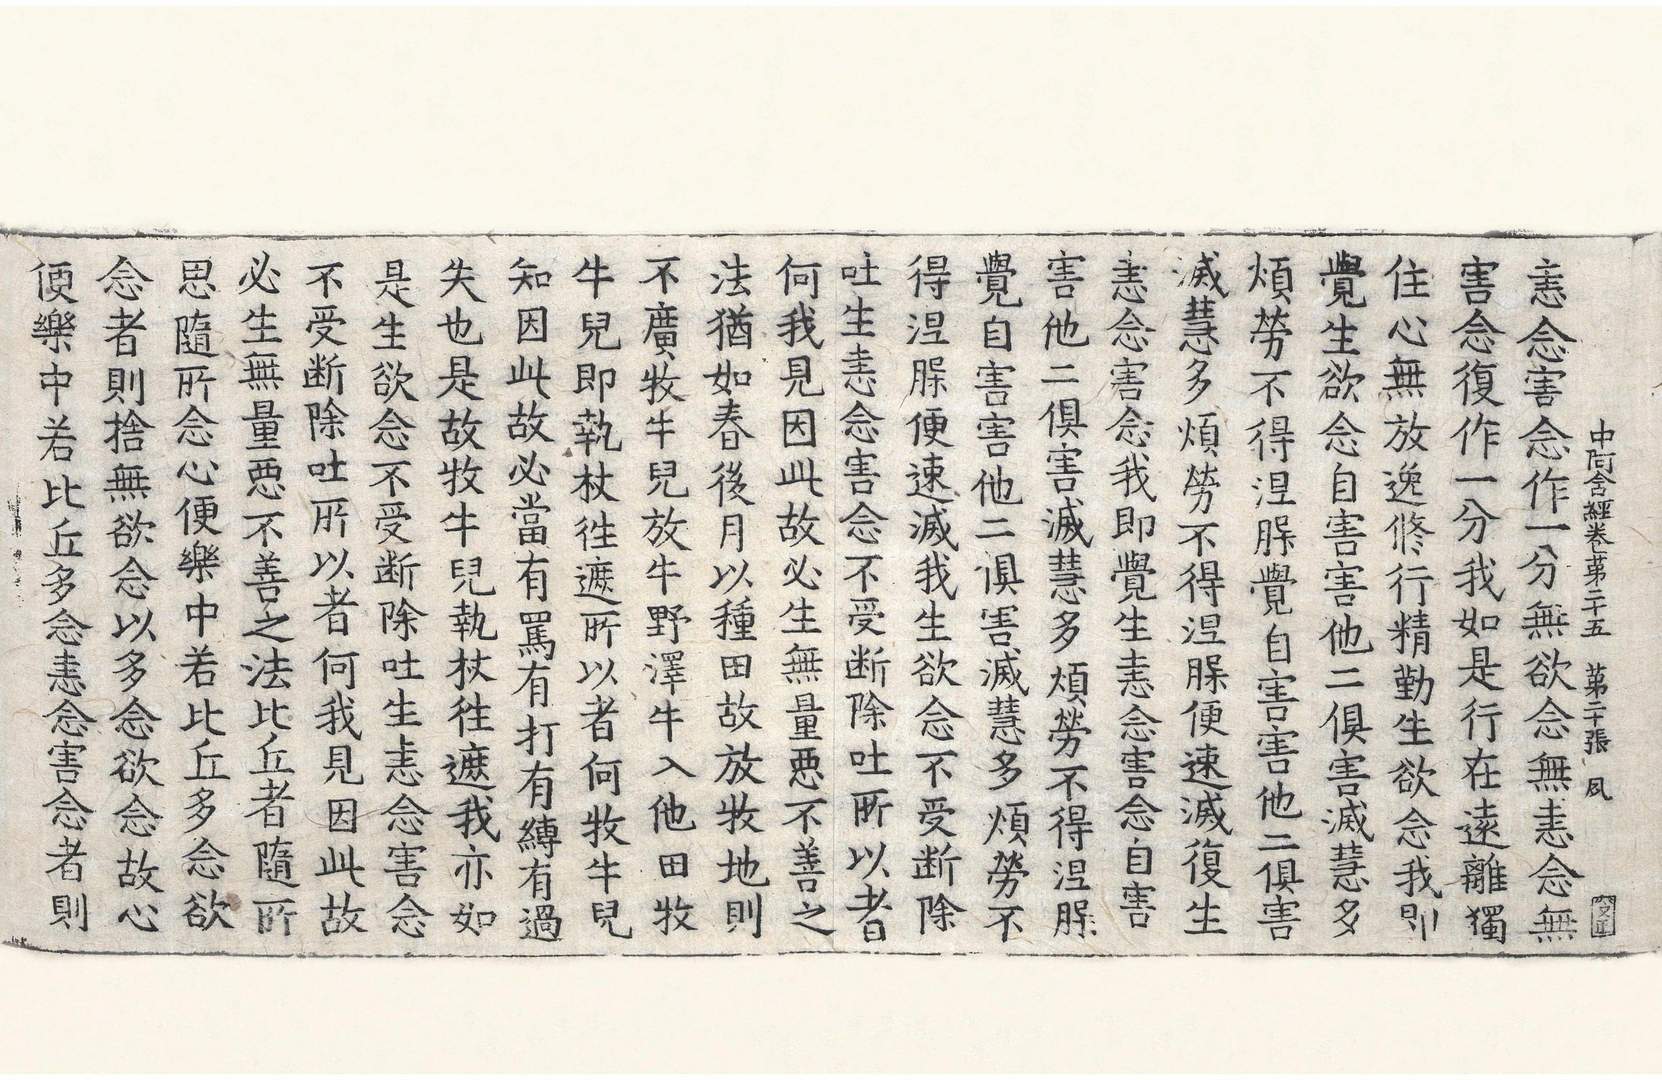 中阿含經卷第二十五　第二十張　夙
恚念害念作一分無欲念無恚念無
害念復作一分我如是行在遠離獨
住心無放逸修行精勤生欲念我即
覺生欲念自害害他二俱害滅慧多
煩勞不得涅槃覺自害害他二俱害
滅慧多煩勞不得涅槃便速滅復生
恚念害念我即覺生恚念害念自害
害他二俱害滅慧多煩勞不得涅槃
覺自害害他二俱害滅慧多煩勞不
得涅槃便速滅我生欲念不受断除
吐生恚念害念不受断除吐所以者
何我見因此故必生無量惡不善之
法猶如春後月以種田故放牧地則
不廣牧牛兒放牛野澤牛入他田牧
牛兒即執杖往遮所以者何牧牛兒
知因此故必當有罵有打有縛有過
失也是故牧牛兒執杖往遮我亦如
是生欲念不受断除吐生恚念害念
不受断除吐所以者何我見因此故
必生無量惡不善之法比丘者隨所
思隨所念心便樂中若比丘多念欲
念者則捨無欲念以多念欲念故心
便樂中若比丘多念恚念害念者則